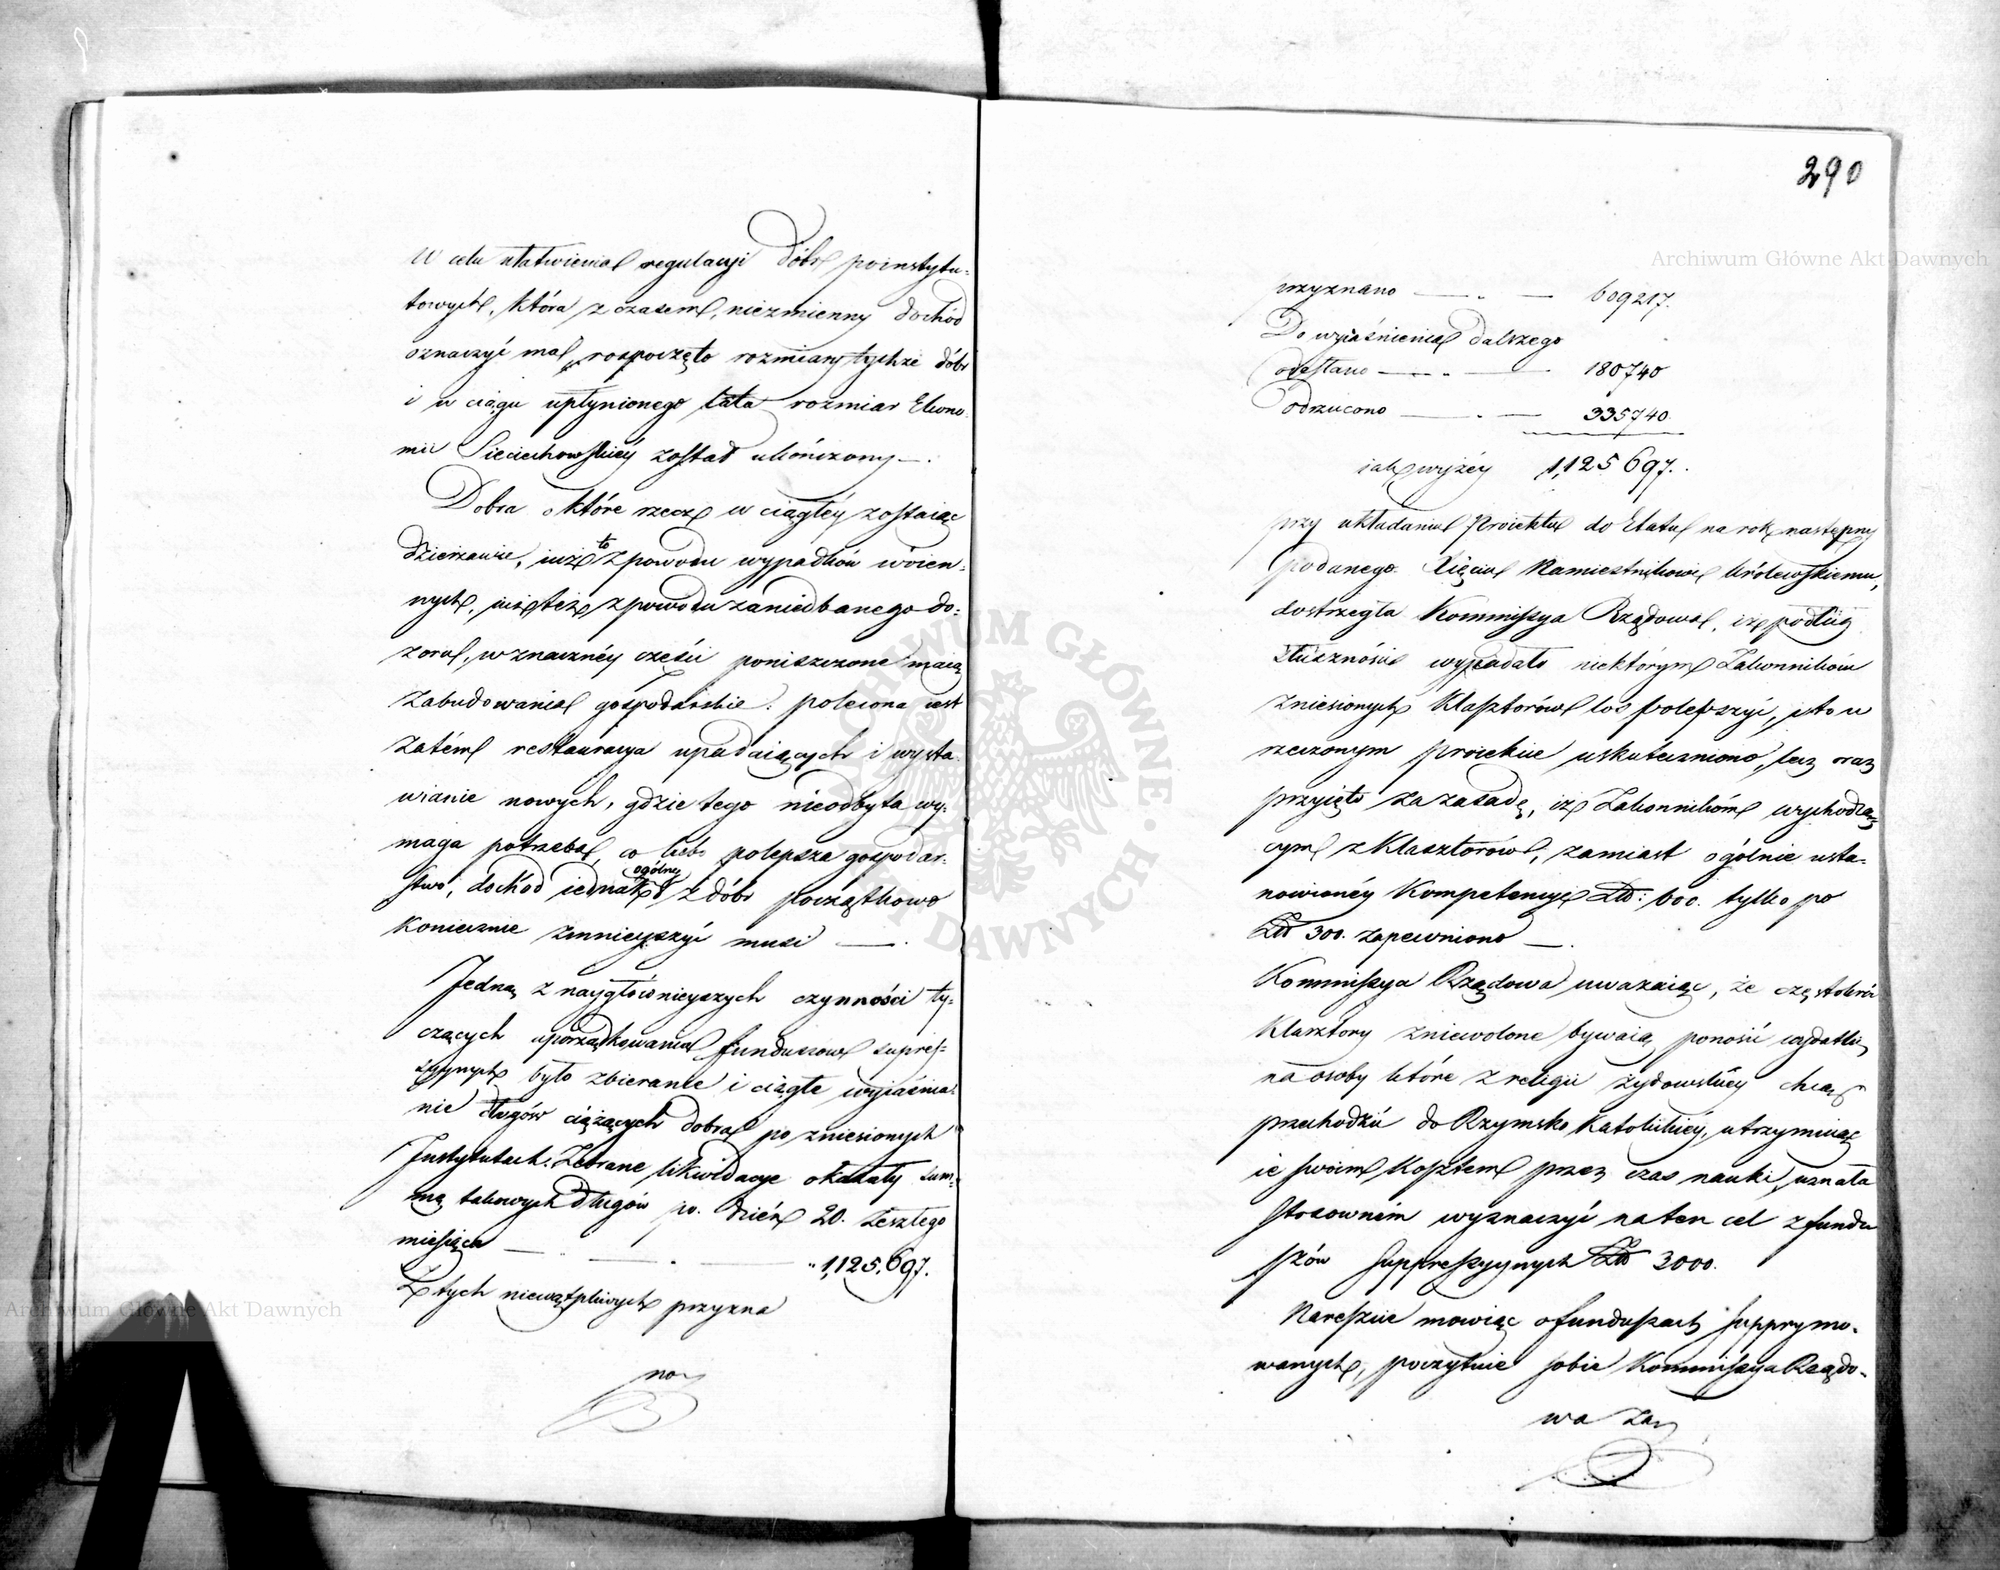 W celu ułatwienia regulacyi dóbr poinstytu-
towych, która z czasem, niezmienny dochód
oznaczyć ma, rospoczęto rozmiary tychże dóbr
i w ciągu upłynionego lata rozmiar Ekono-
mii Sieciechowskiéy został ukończony —.
Dobra o które rzecz w ciągłéy zostaiąc
dzierżawie, iuż to z powodu wypadków woien-
nych, iuż też z powodu zaniedbanego do-
zoru, w znacznéy części poniszczone maią
zabudowania gospodarskie: polecona iest
zatém restauracya upadaiących i wysta-
wianie nowych, gdzie tego nieodbyta wy-
maga potrzeba, co lubo polepsza gospodar-
stwo, dochód iednak ogólny z dóbr początkowo
koniecznie zmnieyszyć musi —.
Jedną z naygłównieyszych czynności ty-
czących uporządkowania funduszów supres-
syynych było zbieranie i ciągłe wyiaśnia-
nie długów ciążących dobra po zniesionych
Instytutach. Zebrane likwidacye okazały sum-
mę takowych długów po dzień 20. zeszłego
miesiąca — " 1,125,697.
Z tych niewątpliwych przyzna
no
290
przyznano — " — 609217.
Do wyiaśnienia dalszego
odesłano — " — 180740
Odrzucono — " — 335740.
iak wyżéy 1,125 697.
przy układaniu Proiektu do Etatu na rok następny
podanego Xięciu Namiestnikowi Królewskiemu,
dostrzegła Kommissya Rządowa, iż podług
słuszności wypadało niektórym Zakonnikom
zniesionych Klasztorów los polepszyć, i to w
rzeczonym proiekcie uskuteczniono, lecz oraz
przyięto za zasadę, iż Zakonnikóm wychodzą-
cym z Klasztorów, zamiast ogólnie usta-
nowionéy Kompetencyi Złł: 600. tylko po
Złł 300. zapewniono —.
Kommissya Rządowa uważaiąc, że częstokroć
Klasztory zniewolone bywaią ponosić wydatki
na osoby które z religii żydowskiéy chcą
przechodzić do Rzymsko Katolickiéy, utrzymuiąc
ie swoim kosztem przez czas nauki, uznała
stosowném wyznaczyć na ten cel z fundu
szów suppressyynych Złł 3000.
Nareszcie mowiąc o funduszach supprymo-
wanych, poczytuie sobie Kommissya Rządo-
wa za